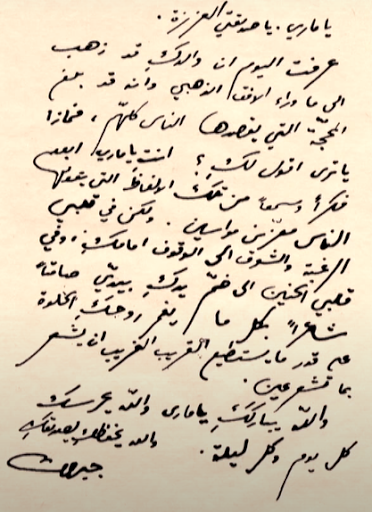 يا ماري . يا صديقتي العزيزة .
عرفت اليوم ان والدكِ قد ذهب
الى ما وراء الافق الذهبي وانه قد بلغ
المحجّة التي يقصدها الناس كلهم ، فماذا
يا ترى اقول لك ؟ انت يا ماري ابعد
فكراً وسمعاً من تلك الالفاظ التي يتفوّه بها
الناس معزّين مواسين . ولكن في قلبي
الرغبة والشوق الى الوقوف امامكِ ، وفي
قلبي الحنين الى ضمّ يدكِ بيديّ صامتاً
شاعراً بكل ما يغمر روحكِ الحلوة
على قدر ما يستطيع القريب الغريب ان يشعر
بما تشعرين .
والله يباركك يا ماري والله يحرسك
كل يوم وكل ليلة . والله يحفظكِ لصديقكِ
جبران